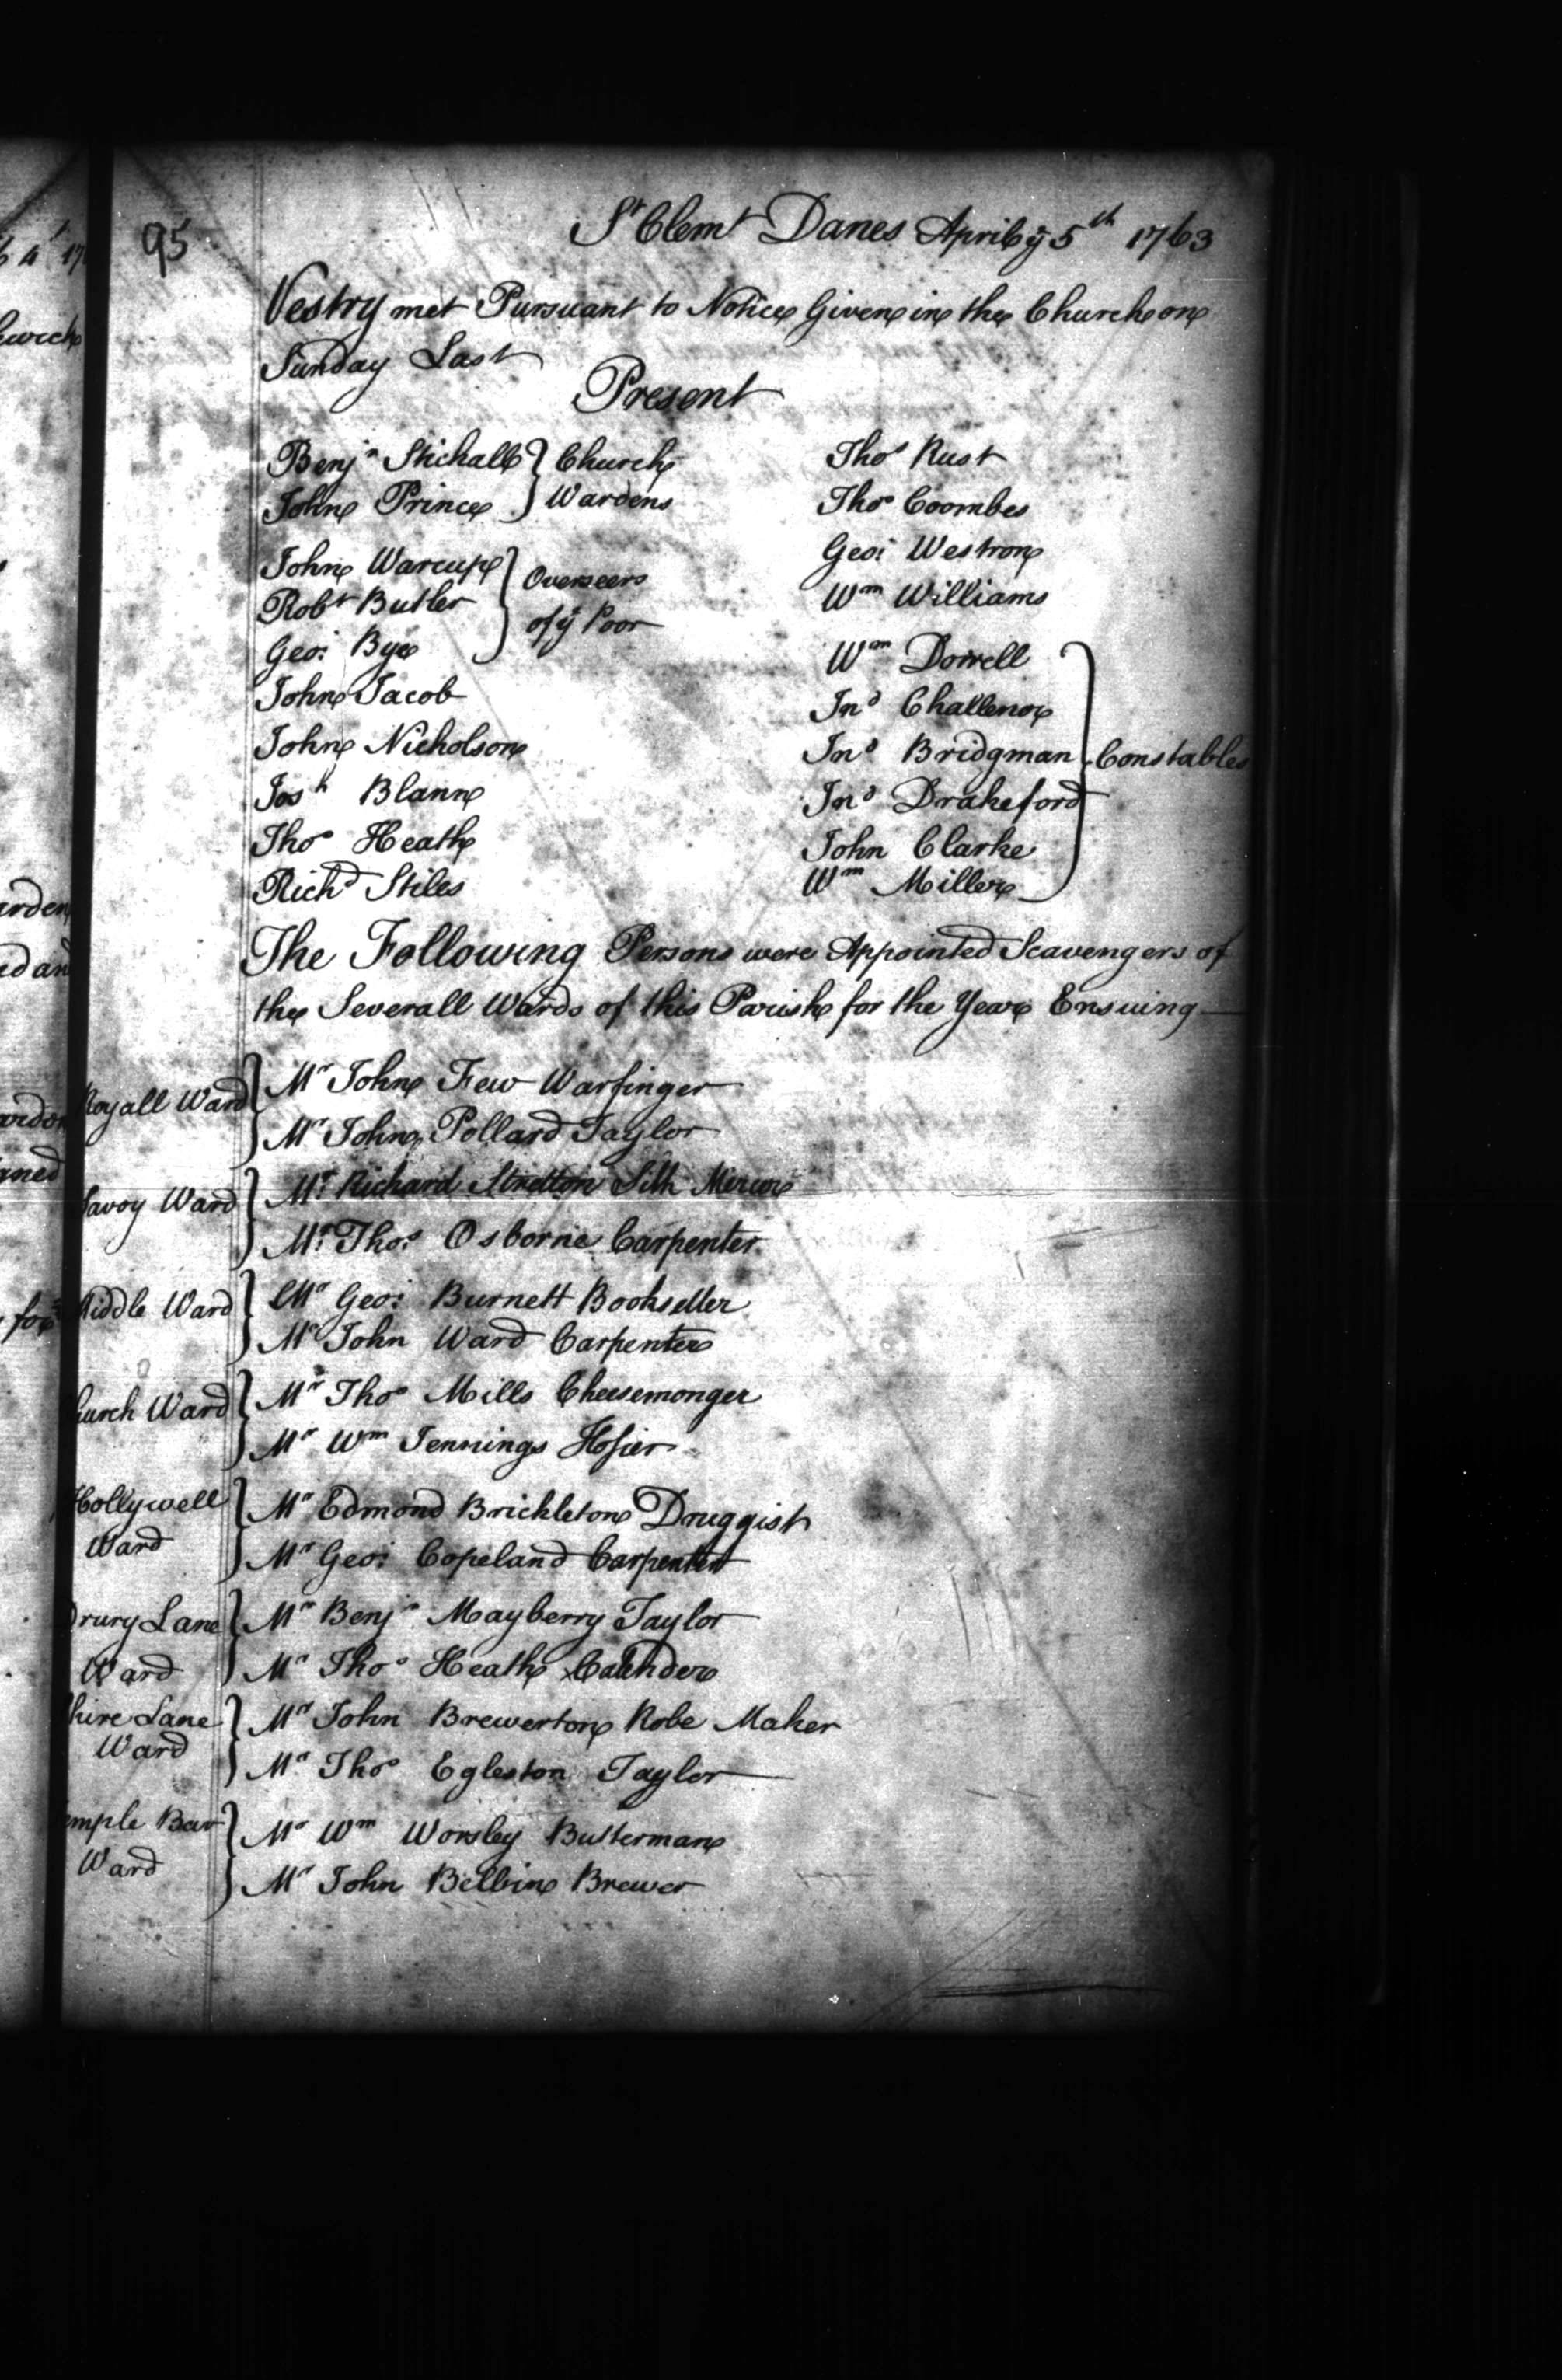 95
St Clemt Danes April ye 5th 1763
Vestry met Pursuant to Notice Given in the Church on
Sunday Last
Present
Benjn Stichall } Church
John Prince } Wardens
John Warcup } Overseers
Robt Butler } of ye Poor
Geo: Bye
John Jacob
John Nicholson
Josh Blann
Thos Heath
Richd Stiles
Thos Rust
Thos Coombes
Geo: Westron
Wm Williams
Wm Dorrell
Jno Challenor
Jno Bridgman } Constables
Jno Drakeford
John Clarke
Wm Miller
The Following Persons were Appointed Scavengers of
the Severall Wards of this Parish for the Year Ensuing
Royall Ward { Mr John Few Warfinger
Mr John Pollard Taylor
Savoy Ward { Mr Richard Stretton Silk Mercer
Mr Thos Osborne Carpenter
Middle Ward { Mr Geo: Burnett Bookseller
Mr John Ward Carpenter
hurch Ward { Mr Thos Mills Cheesemonger
Mr Wm Jennings Hosier
Hollywell { Mr Edmond Brickleton Druggist
Ward { Mr Geo: Copeland Carpenter
Drury Lane { Mr Benjn Mayberry Taylor
Ward { Mr Thos Heath
hire Lane { Mr John Brewerton Robe Maker
Ward { Mr Thos Egleston Taylor
emple Bar { Mr Wm Worsley Butterman
Ward { Mr John Belbin Brewer